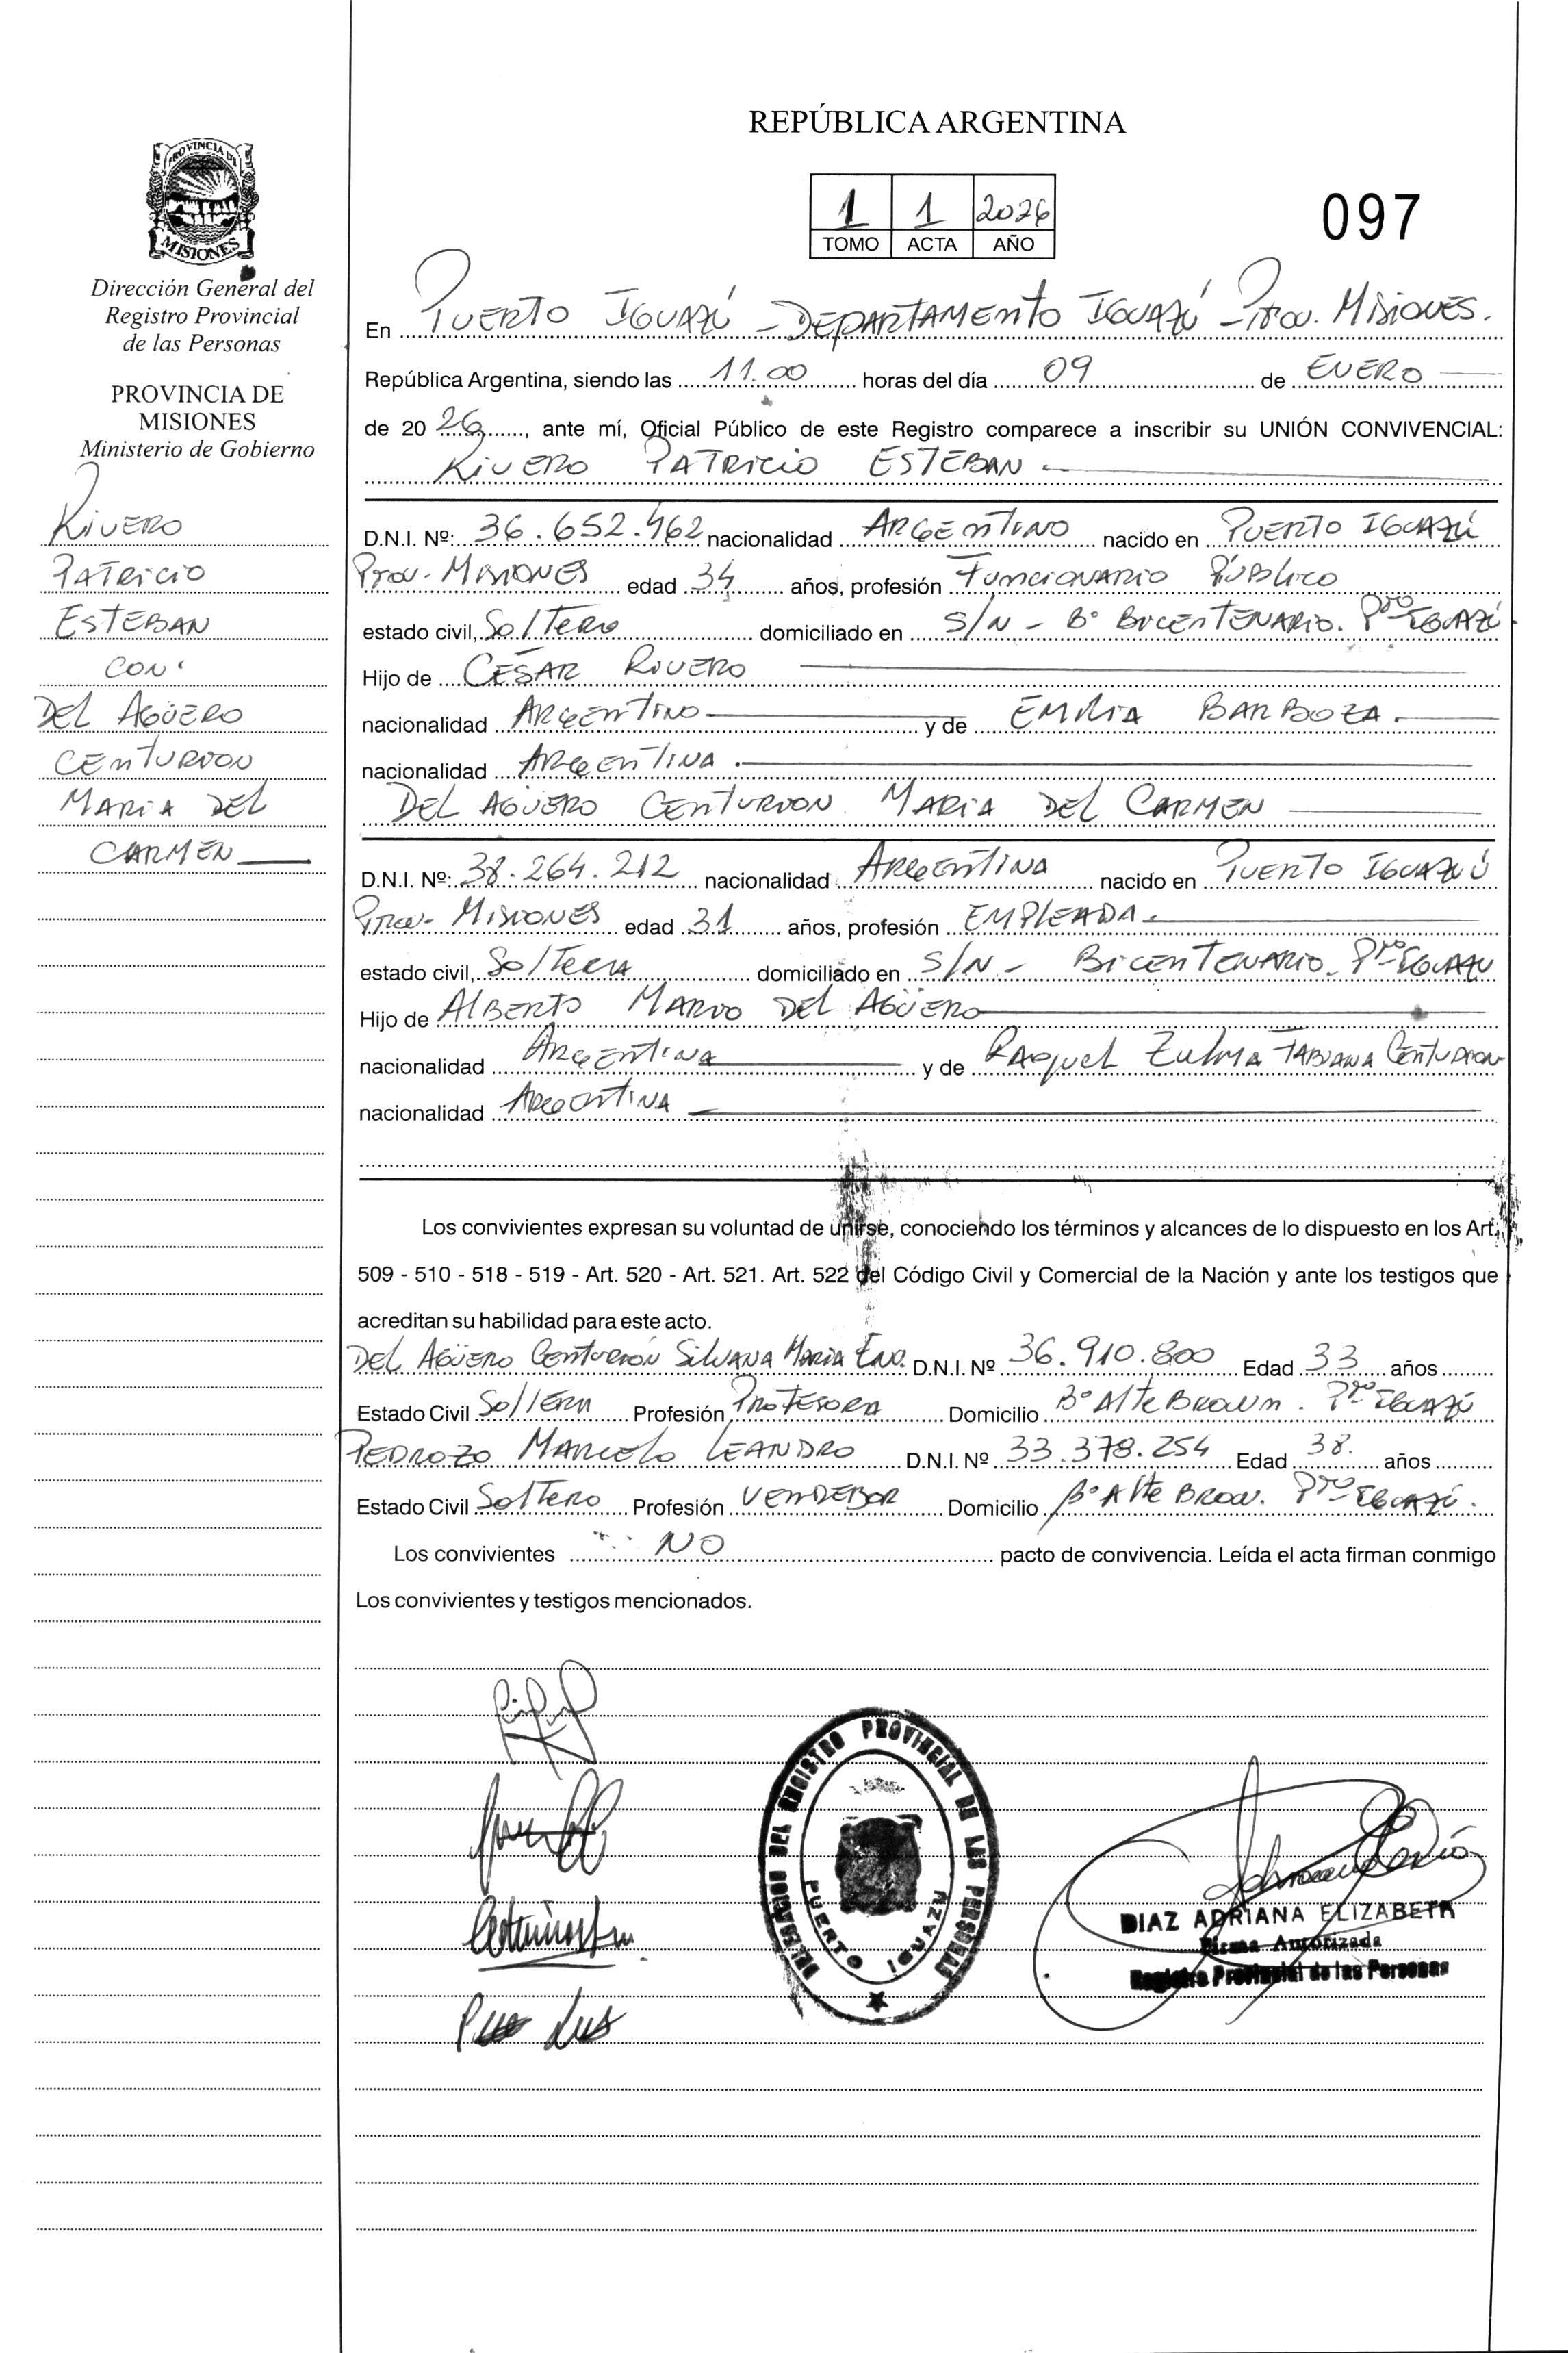 REPÚBLICA ARGENTINA
1 1 2026
TOMO ACTA AÑO
097
PROVINCIA DE
MISIONES
Dirección General del
Registro Provincial
de las Personas
PROVINCIA DE
MISIONES
Ministerio de Gobierno
RIVERO
PATRICIO
ESTEBAN
CON
DEL AGÜERO
CENTURION
MARIA DEL
CARMEN
En PUERTO IGUAZÚ - DEPARTAMENTO IGUAZÚ - Prov. MISIONES.
República Argentina, siendo las 11.00 horas del día 09 de ENERO
de 20 26, ante mí, Oficial Público de este Registro comparece a inscribir su UNIÓN CONVIVENCIAL:
RIVERO PATRICIO ESTEBAN
D.N.I. Nº: 36.652.462 nacionalidad ARGENTINO nacido en PUERTO IGUAZÚ
Prov. MISIONES edad 34 años, profesión Funcionario Público
estado civil, Soltero domiciliado en S/N - Bº BICENTENARIO. Pto IGUAZÚ.
Hijo de CÉSAR RIVERO
nacionalidad ARGENTINO y de EMILIA BARBOZA.
nacionalidad ARGENTINA.
DEL AGÜERO CENTURION MARIA DEL CARMEN
D.N.I. Nº: 38.264.212 nacionalidad ARGENTINA nacido en PUERTO IGUAZÚ
Prov. MISIONES edad 31 años, profesión EMPLEADA.
estado civil, Soltera domiciliado en S/N - BICENTENARIO. Pto IGUAZU
Hijo de ALBERTO MARIO DEL AGÜERO
nacionalidad ARGENTINA y de RAQUEL ZULMA FABIANA CENTURION
nacionalidad ARGENTINA
Los convivientes expresan su voluntad de unirse, conociendo los términos y alcances de lo dispuesto en los Art.
509 - 510 - 518 - 519 - Art. 520 - Art. 521. Art. 522 del Código Civil y Comercial de la Nación y ante los testigos que
acreditan su habilidad para este acto.
DEL AGÜERO CENTURIÓN SILVANA MARIA D.N.I. Nº 36.910.800 Edad 33 años
Estado Civil Soltera Profesión Profesora Domicilio Bº Alte Brown. Pto IGUAZÚ
PEDROZO MARCELO LEANDRO D.N.I. Nº 33.378.254 Edad 38. años
Estado Civil Soltero Profesión VENDEDOR Domicilio Bº Alte Brow. Pto IGUAZÚ.
Los convivientes NO pacto de convivencia. Leída el acta firman conmigo
Los convivientes y testigos mencionados.
DELEGACION DEL REGISTRO PROVINCIAL DE LAS PERSONAS
PUERTO IGUAZU
DIAZ ADRIANA ELIZABETH
Firma Autorizada
Registro Provincial de las Personas